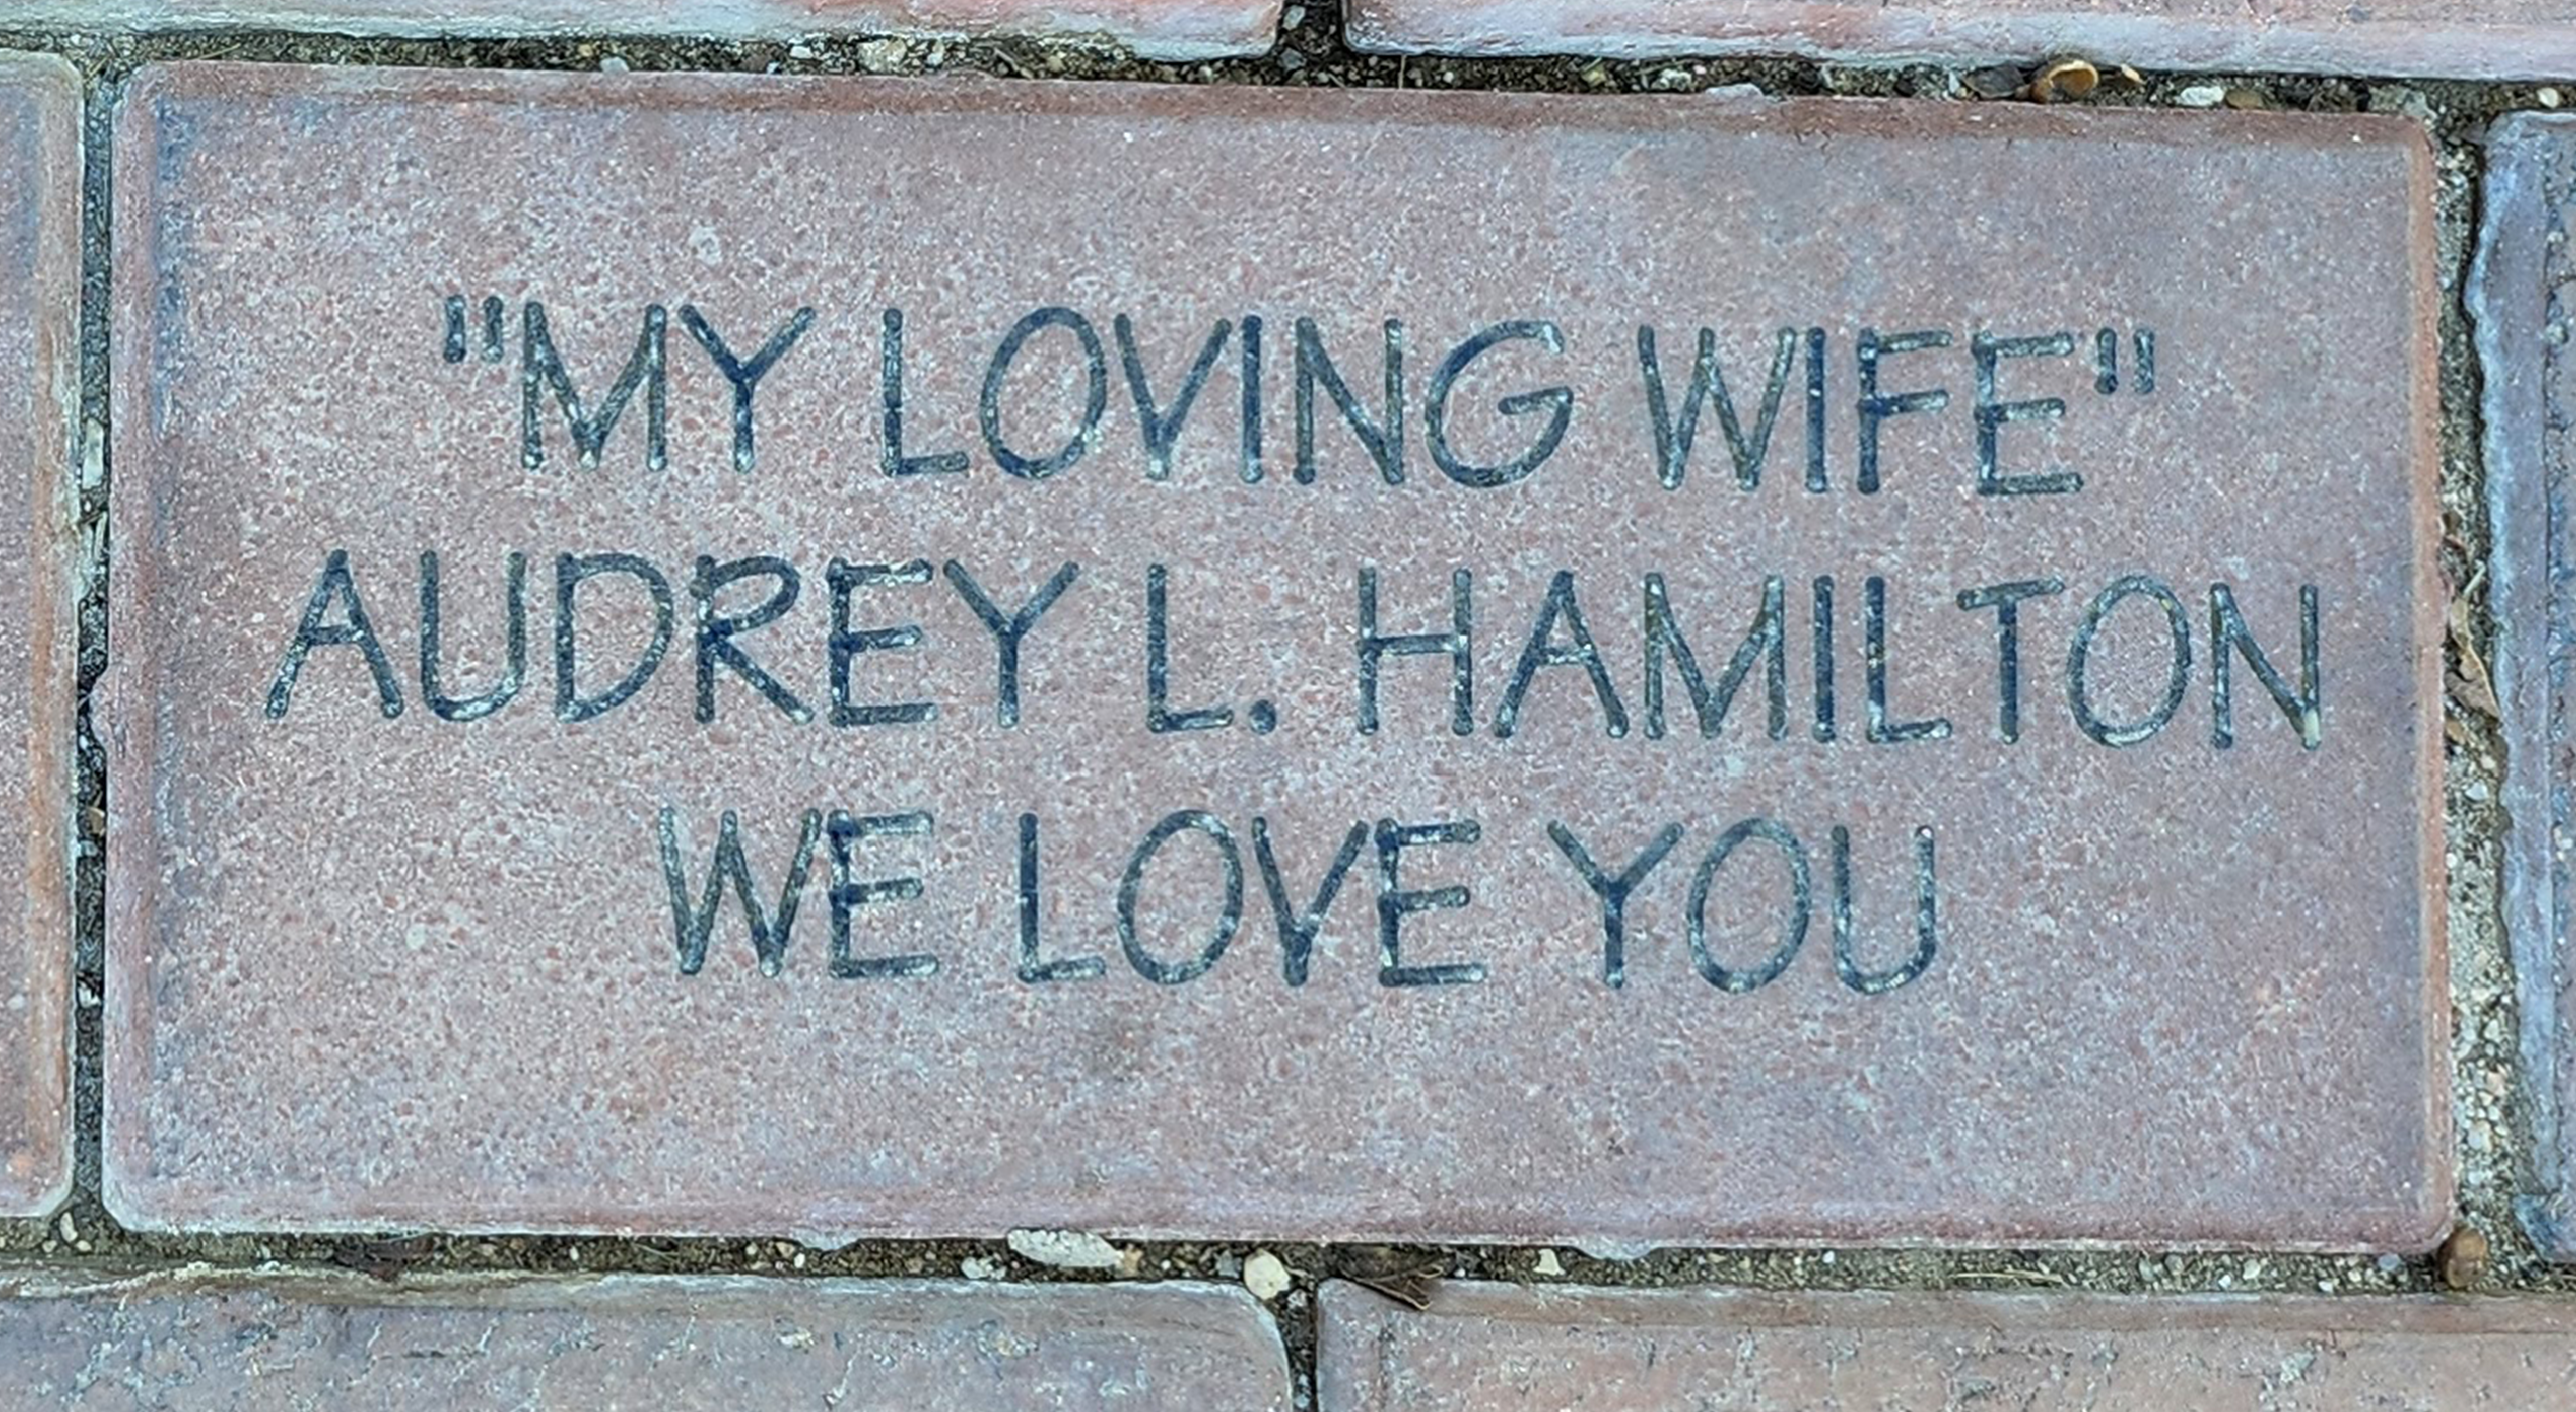 "MY LOVING WIFE"
AUDREY L. HAMILTON
WE LOVE YOU